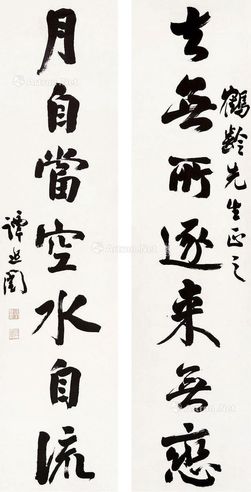 鶴齡先生正之
去無所逐来無戀
月自當空水自流
譚延闓